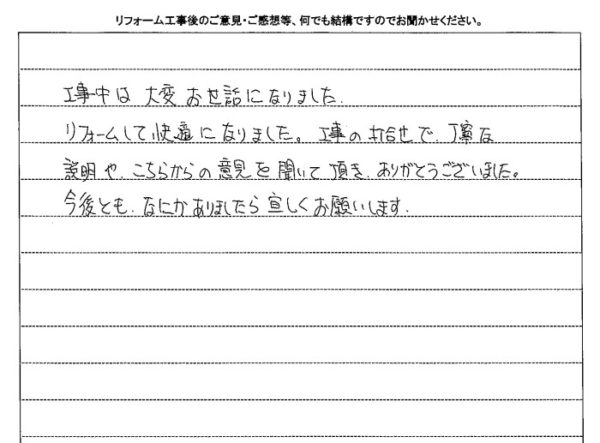 リフォーム工事後のご意見・ご感想等、何でも結構ですのでお聞かせください。
工事中は 大変 お世話になりました.
リフォームして快適になりました。工事の打合せで、丁寧な
説明や、こちらからの意見を聞いて頂き、ありがとうございました。
今後とも、なにかありましたら宜しくお願いします.